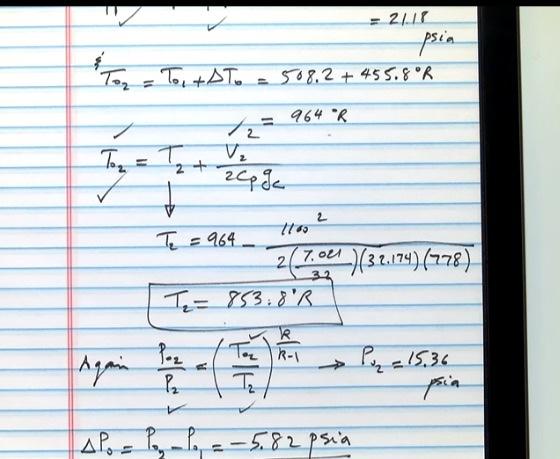 = 21.18
psia
& To₂ = To₁ + ΔTo = 508.2 + 455.8°R
= 964 °R
To₂ = T₂ + V₂² / 2CpgC
T₂ = 964 - 1100² / 2(7.021/32)(32.174)(778)
T₂ = 853.8°R
Again Po₂/P₂ = (To₂/T₂)^(k/k-1) → Po₂ = 15.36
psia
ΔPo = Po₂ - Po₁ = -5.82 psia